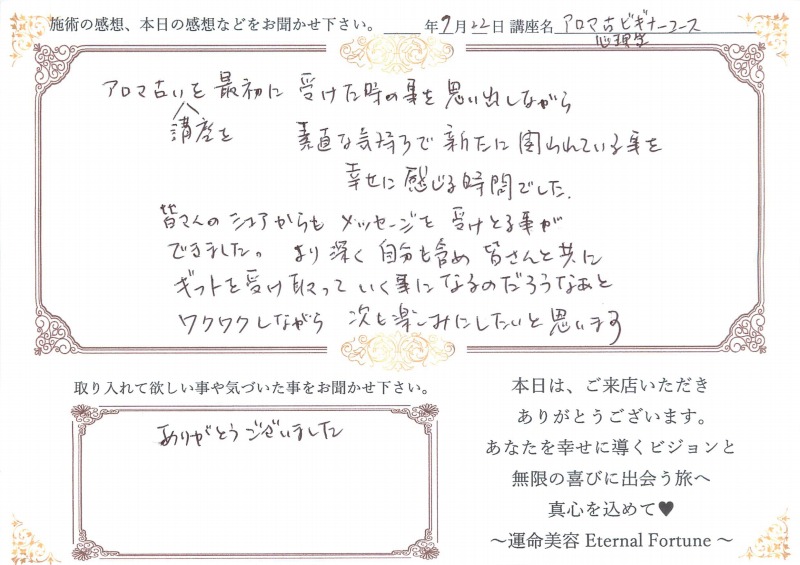 施術の感想、本日の感想などをお聞かせ下さい。 年 9月22日 講座名 アロマ占ビギナーコース
心理学
アロマ占いを 最初に 受けた時の事を 思い出しながら
講座を 素直な気持ちで 新たに 図られている事を
幸せに 感じる時間でした.
皆さんの シェアからも メッセージを 受けとる事が
できました。 より深く 自分も含め 皆さんと共に
ギフトを受け取って いく事になるのだろうなぁと
ワクワクしながら 次も楽しみにしたいと思います
取り入れて欲しい事や気づいた事をお聞かせ下さい。
ありがとうございました
本日は、ご来店いただき
ありがとうございます。
あなたを幸せに導くビジョンと
無限の喜びに出会う旅へ
真心を込めて♥
～運命美容 Eternal Fortune ～